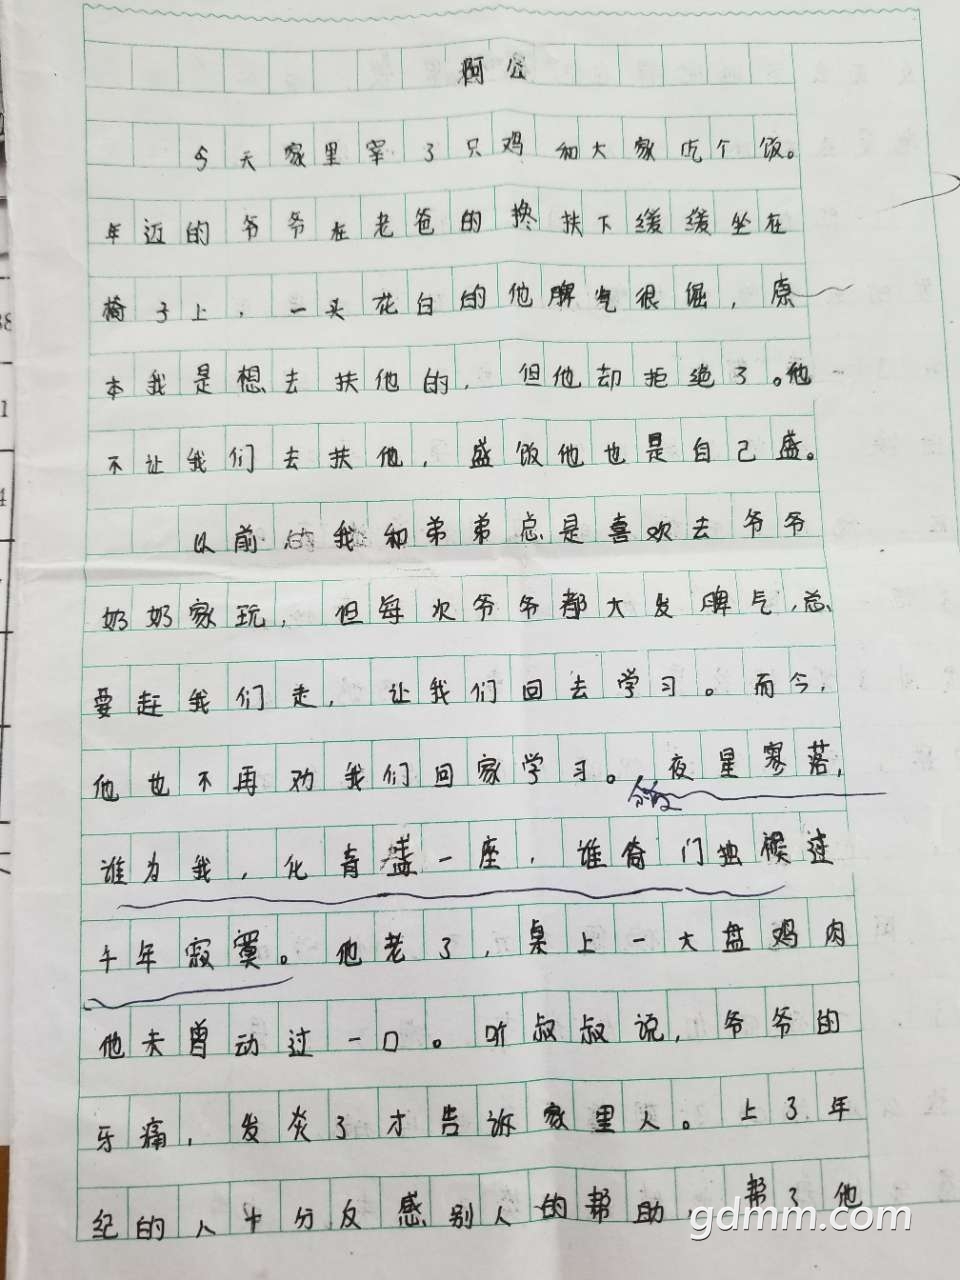 阿公
今天家里宰了只鸡和大家吃个饭。
年迈的爷爷在老爸的搀扶下缓缓坐在
椅子上，一头花白的他脾气很倔，原
本我是想去扶他的，但他却拒绝了。他
不让我们去扶他，盛饭他也是自己盛。
以前的我和弟弟总是喜欢去爷爷
奶奶家玩，但每次爷爷都大发脾气，总
要赶我们走，让我们回去学习。而今，
他也不再劝我们回家学习。夜星寥落，
谁为我，化青盏一座，谁倚门独候过
千年寂寞。他老了，桌上一大盘鸡肉
他未曾动过一口。听叔叔说，爷爷的
牙痛，发炎了才告诉家里人。上了年
纪的人十分反感别人的帮助，帮了他
gdmm.com